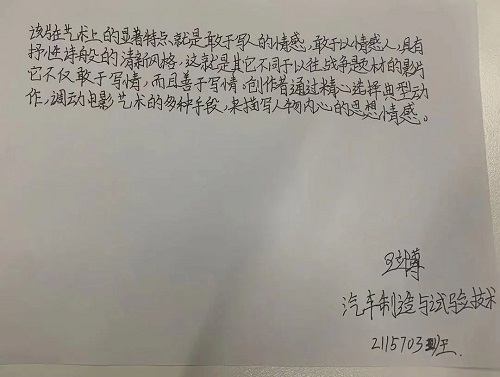 该片在艺术上的显著特点,就是敢于写人的情感,敢于以情感人,具有
抒性诗般的清新风格,这就是其它不同于以往战争题材的影片
它不仅敢于写情,而且善于写情。创作者通过精心选择典型动
作,调动电影艺术的多种手段,来描写人物内心的思想情感。
博
汽车制造与试验技术
2115703班